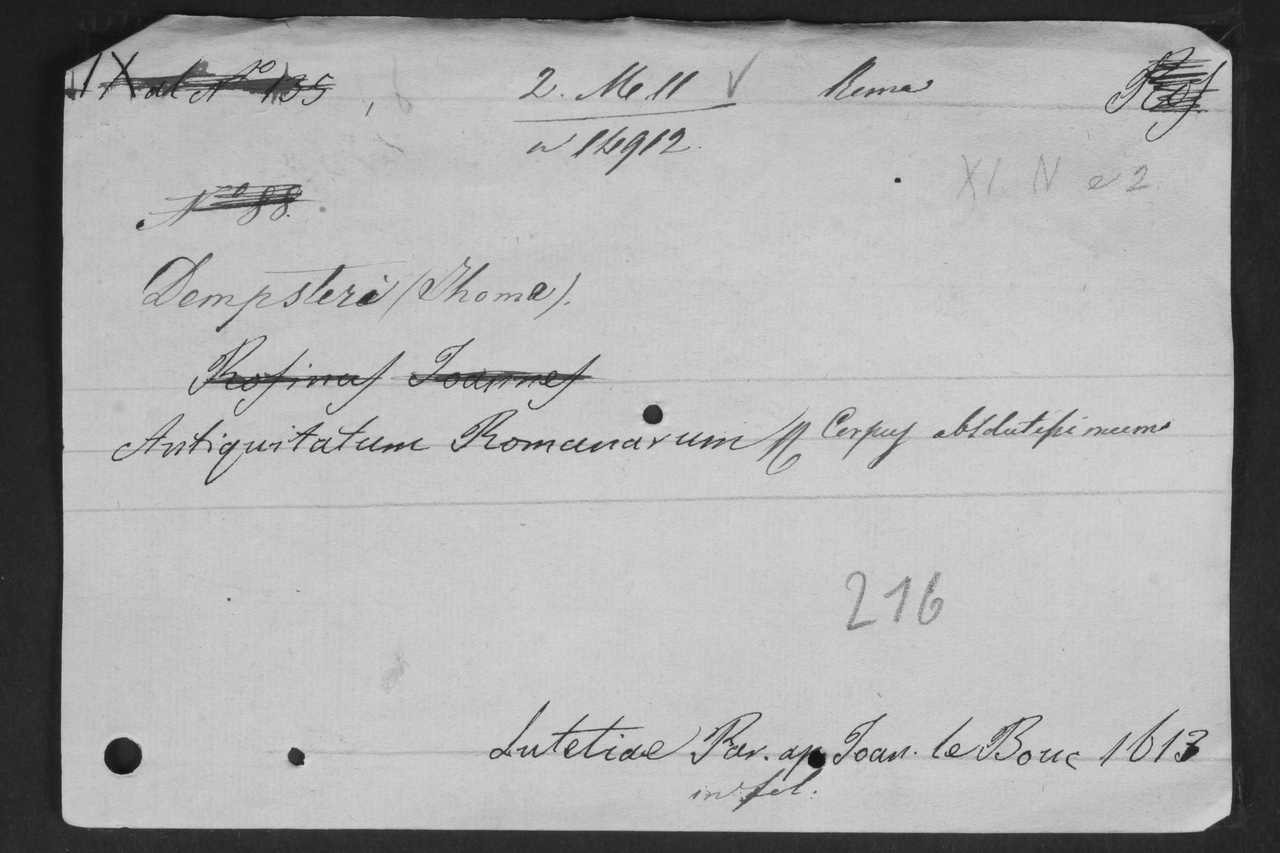 IX al Nº 135 2. Mell Roma Ref
14912.
XI. N e 2.
Nº 88.
Dempsteri (Thoma).
Rosinus Joannes
Antiquitatum Romanarum Corpus absolutissimum
216
Lutetiae Par. ap Joan. le Bouc 1613
in fol.